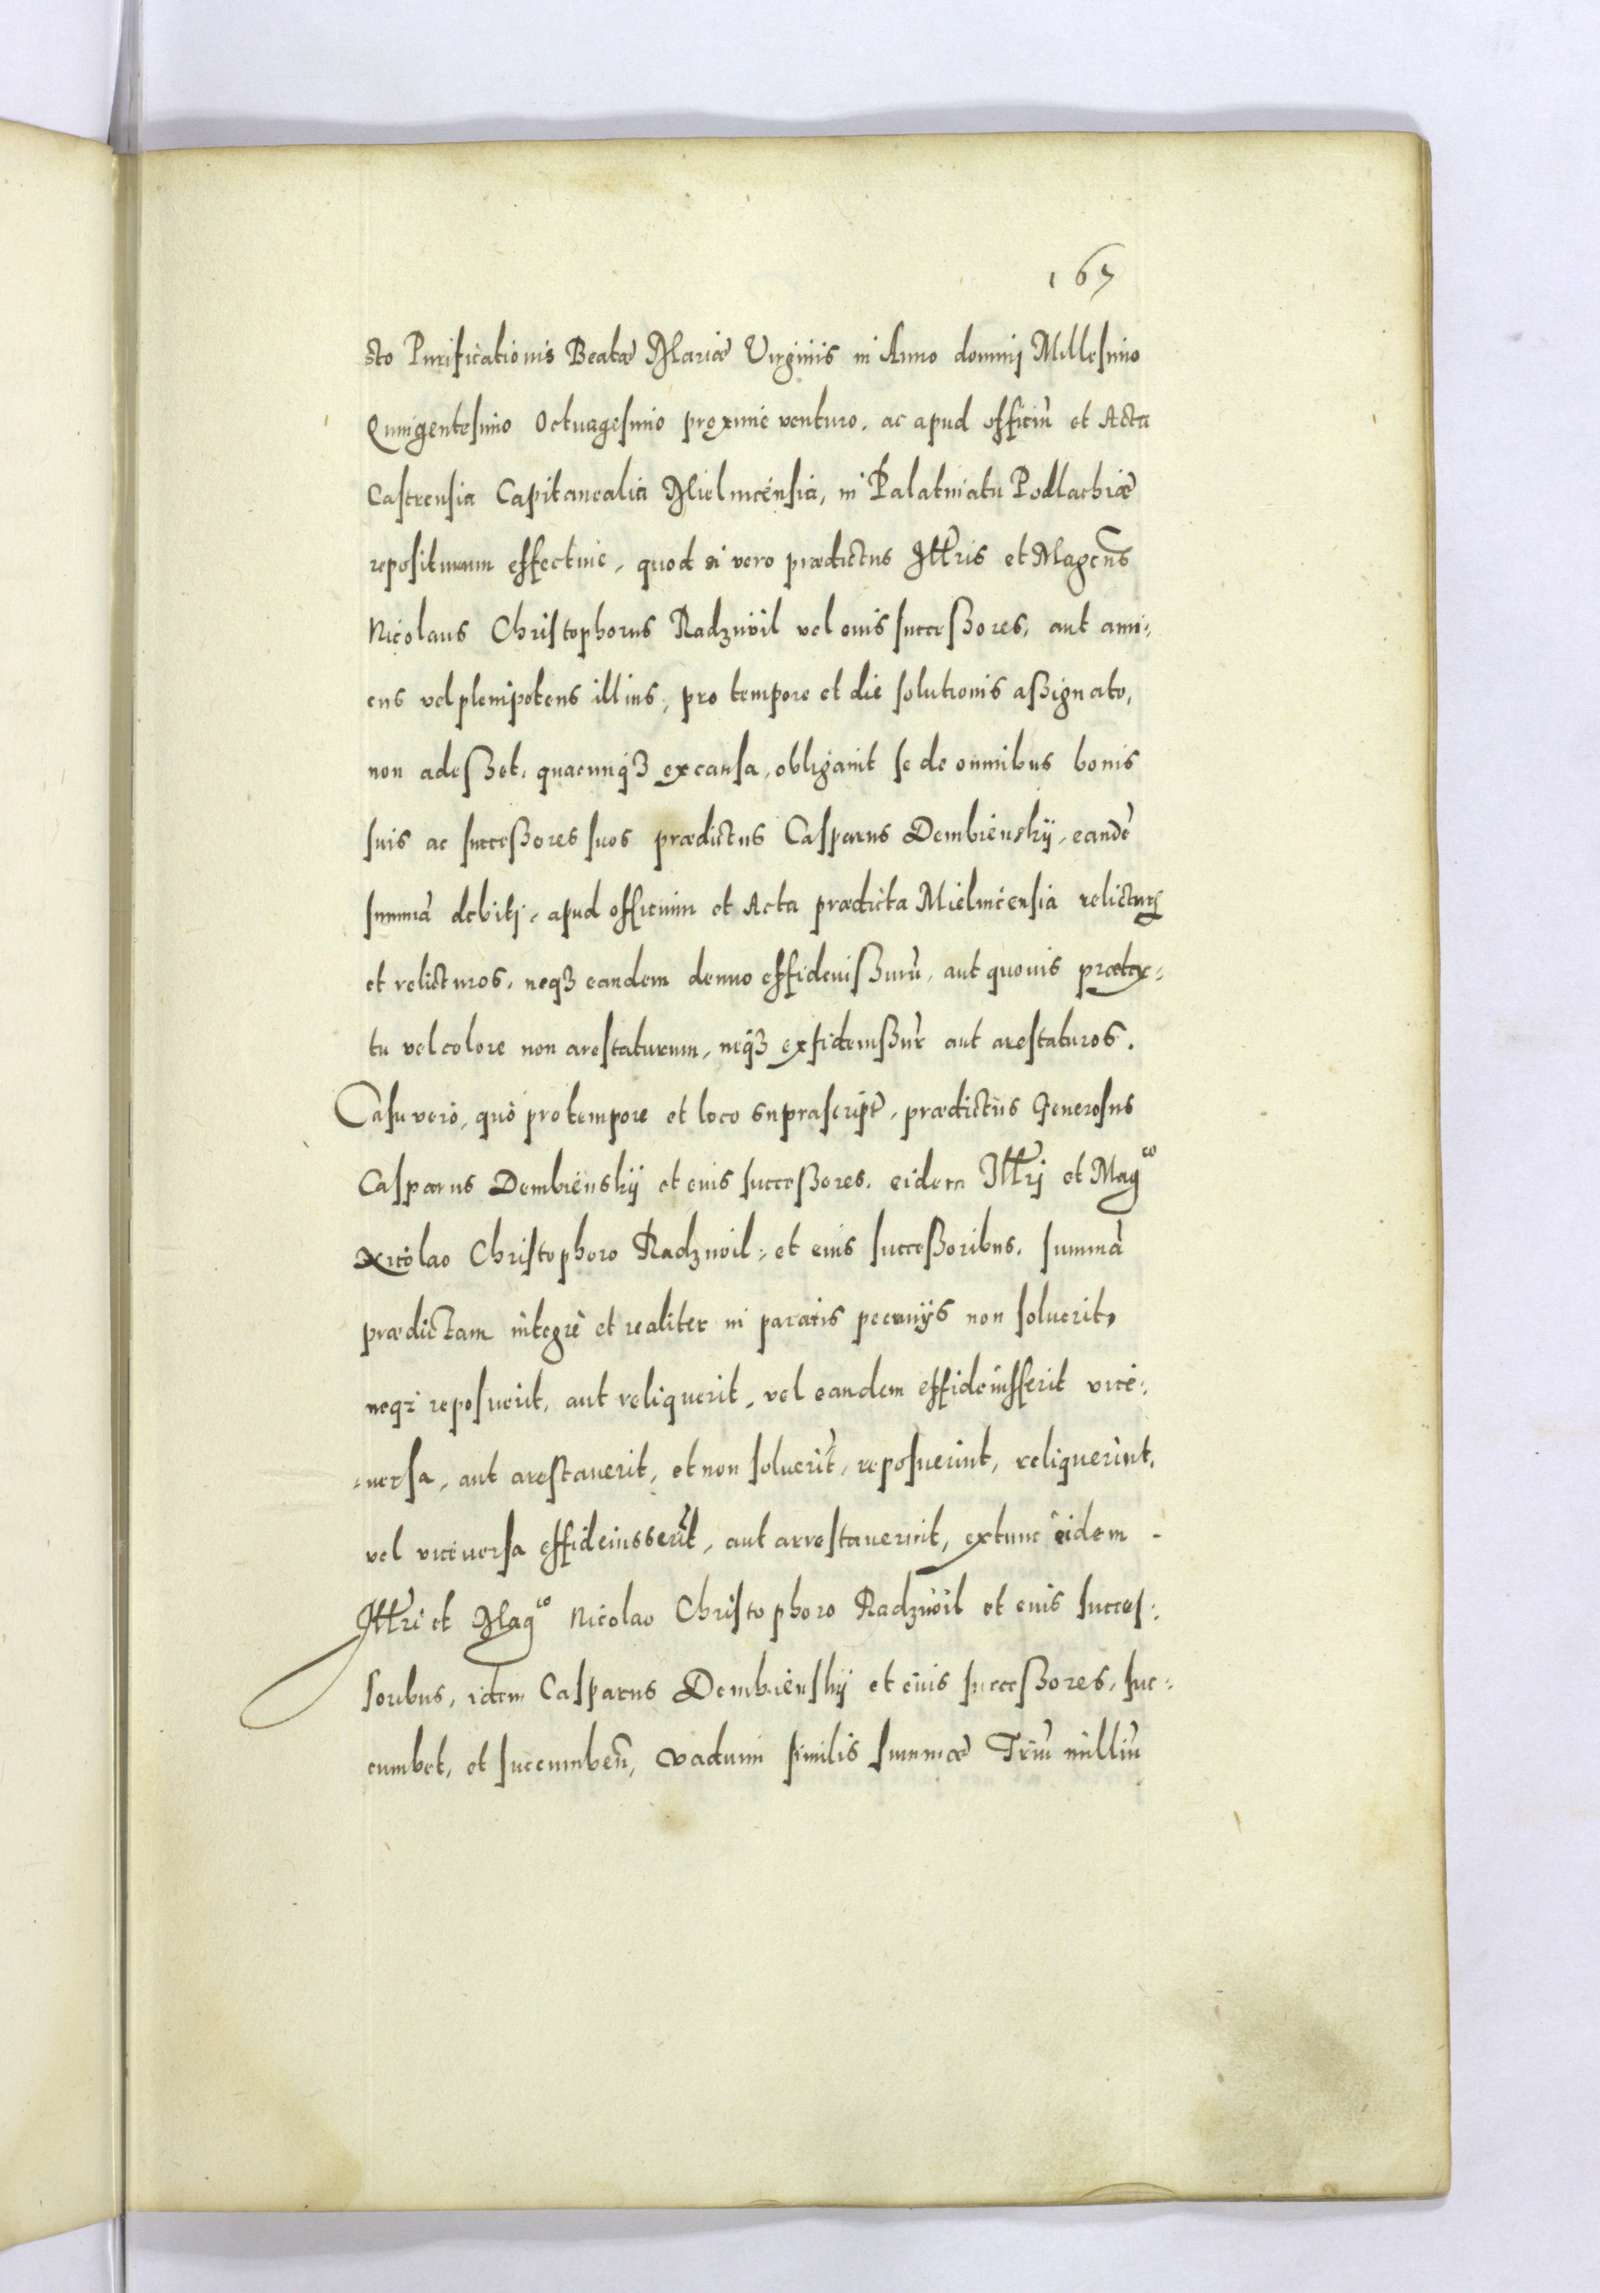 167
sto Purificationis Beatæ Mariæ Virginis in Anno dominj Millesimo
Quingentesimo Octuagesimo proxime venturo, ac apud officiũ et Acta
Castrensia Capitanealia Mielnicensia, in Palatinatu Podlachiæ
repositurum effectiue, quod si vero prædictus Illtris et Magcus
Nicolaus Christophorus Radziwil vel euis successores, aut ami:
cus vel plenipotens illius, pro tempore et die solutionis assignato,
non adesset, quacunqȝ ex causa, obligauit se de omnibus bonis
suis ac successores suos prædictus Casparus Dembienskÿ, eandẽ
summã debitj, apud officium et Acta prædicta Mielnicensia relicturũ
et relicturos, neqȝ eandem denuo effideiussurũ, aut quouis prætex:
tu vel colore non arestaturum, neqȝ exfideiussur̃ aut arestaturos.
Casu vero, quo pro tempore et loco suprascript̃, prædictus Generosus
Casparus Dembienskÿ et euis successores, eidem Illtrj et Magco
Nicolao Christophoro Radziwil, et euis successoribus, summã
prædictam integre et realiter in paratis pecunÿs non soluerit,
neqȝ reposuerit, aut reliquerit, vel eandem effideiusserit vice:
:uersa, aut arestauerit, et non soluerĩt, reposuerint, reliquerint,
vel viceuersa effideiusserĩt, aut arrestauerint, extunc eidem -
Illtri et Magco Nicolao Christophoro Radziwil et euis succes:
soribus, idem Casparus Dembienskÿ et euis successores, suc:
cumbet, et succumbeñ, vadium similis summæ Triũ milliũ